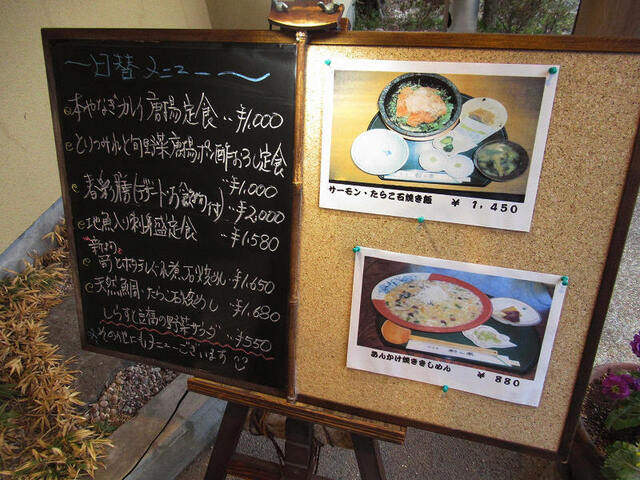 ～日替メニュー～
本やなぎカレイ唐揚定食‥¥1,000
とりつくねと旬野菜唐揚ポン酢おろし定食
‥¥1,000
春御膳(デザート・お飲物付)‥¥2,000
地魚入り刺身盛定食‥¥1,580
‥¥1,650
天然鯛・たらこ石焼めし‥¥1,680
しらすと豆腐の野菜サラダ‥¥550
※その他にもメニューございます
サーモン・たらこ石焼き飯
¥1,450
あんかけ焼ききしめん
880